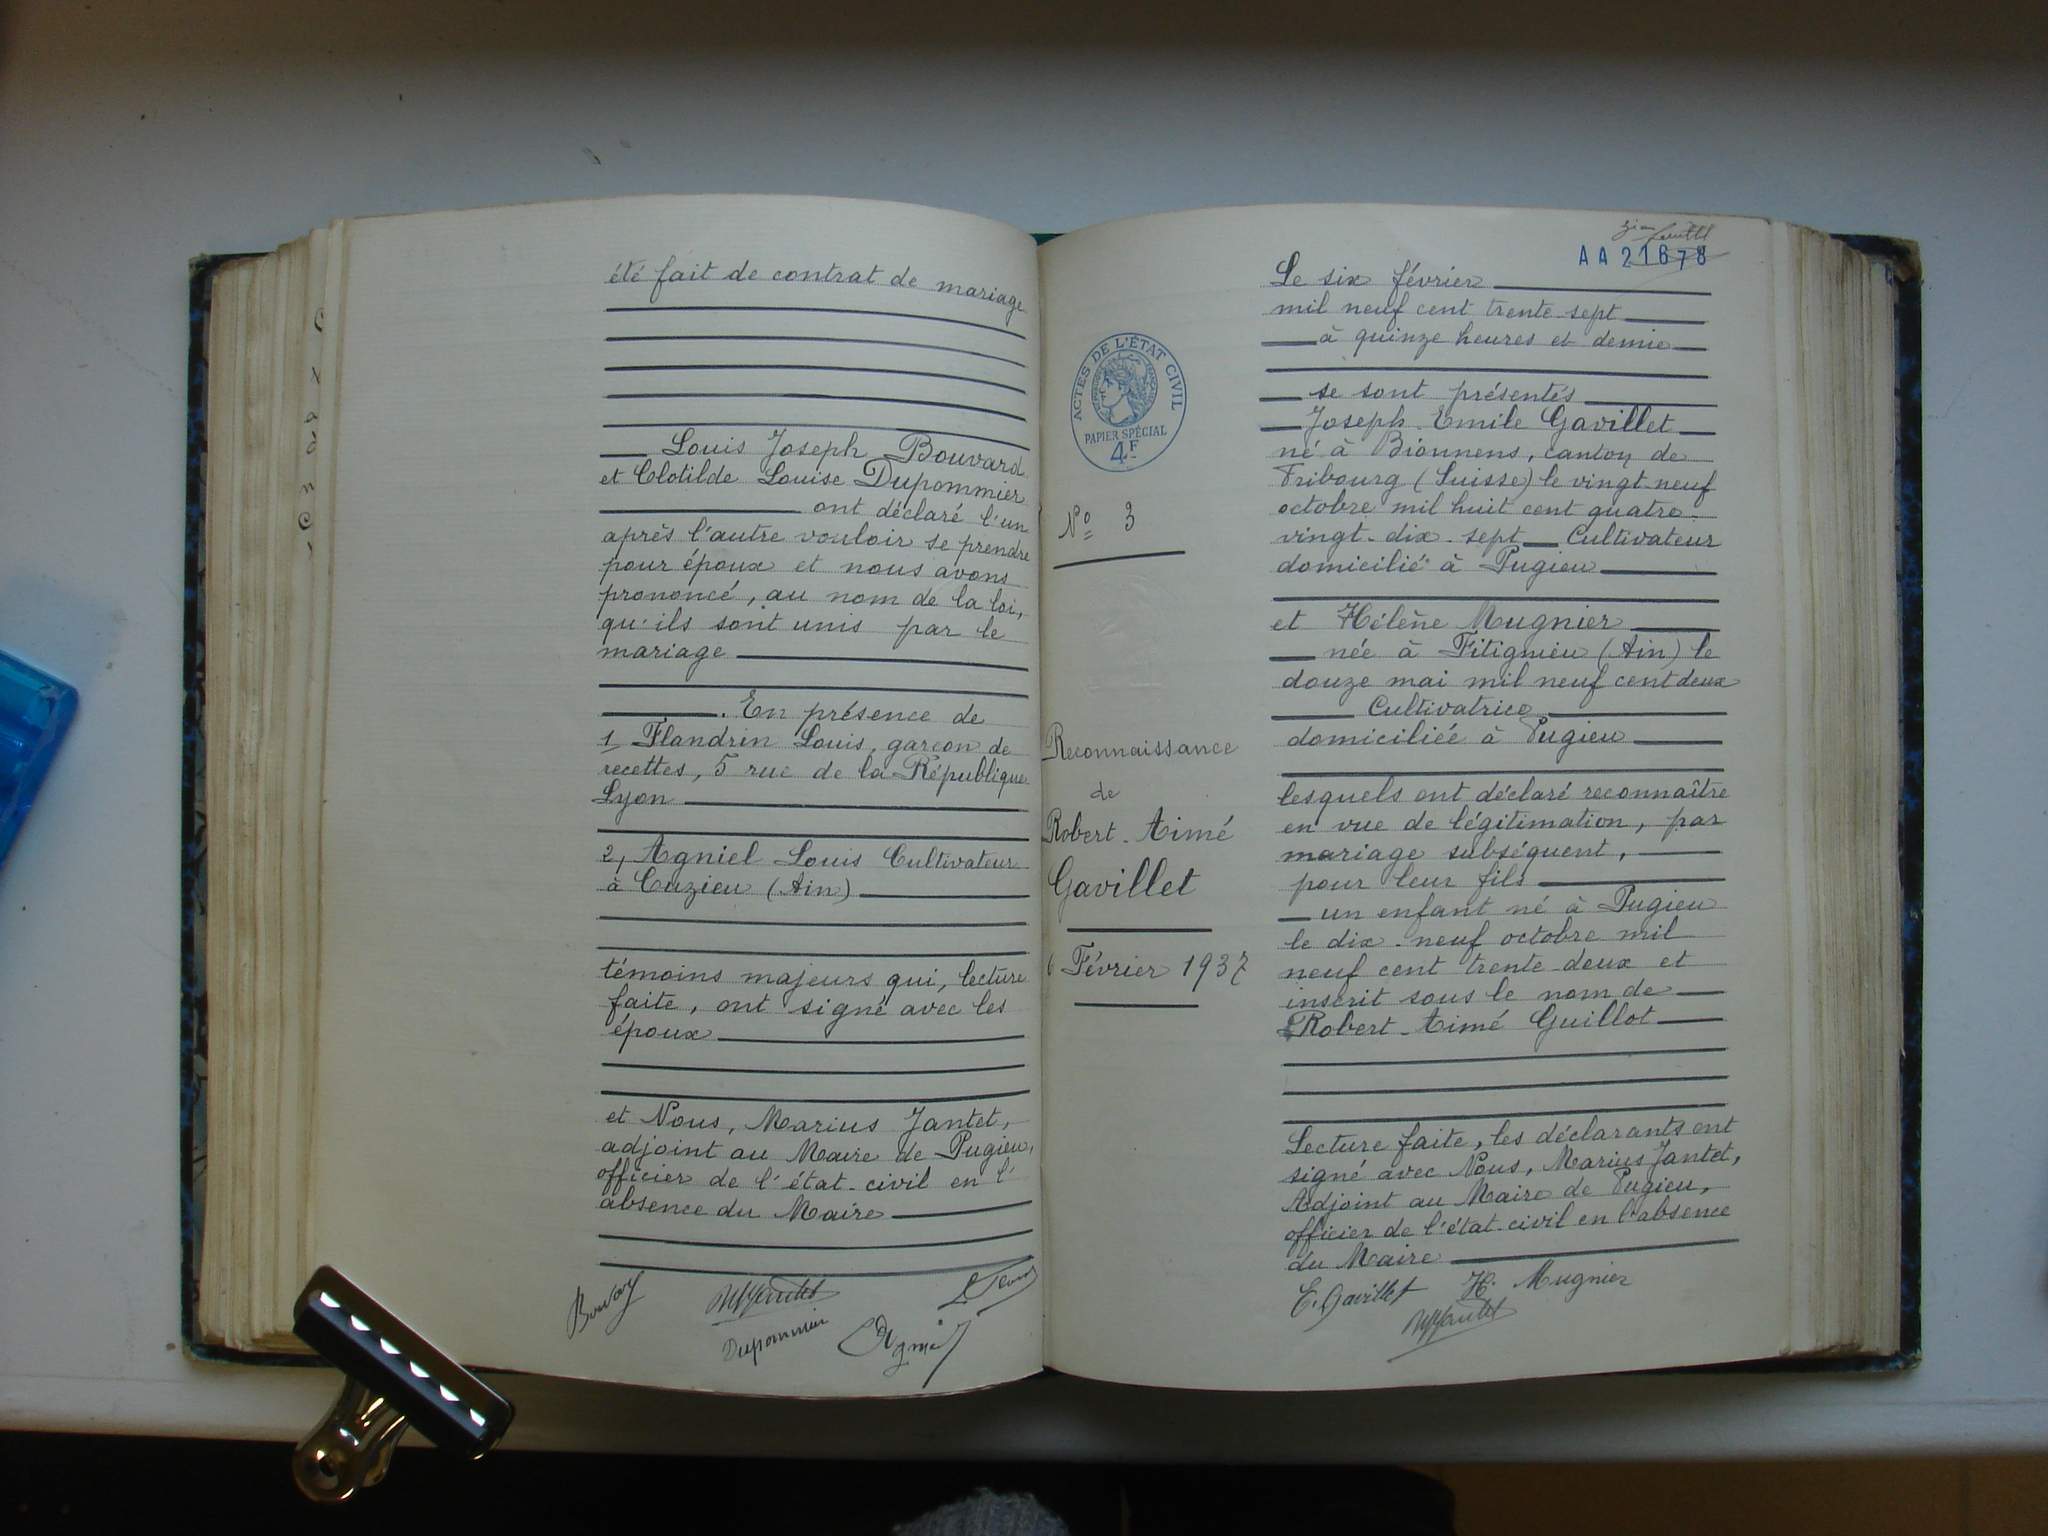 été fait de contrat de mariage
Louis Joseph Bouvard
et Clotilde Louise Dupommier
ont déclaré l'un
après l'autre vouloir se prendre
pour époux et nous avons
prononcé, au nom de la loi,
qu'ils sont unis par le
mariage
. En présence de
1 Flandrin Louis, garçon de
recettes, 5 rue de la République
Lyon
2, Agniel Louis Cultivateur
à Cuzieu (Ain)
témoins majeurs qui, lecture
faite, ont signé avec les
époux
et Nous, Marius Jantet,
adjoint au Maire de Pugieu,
officier de l'état-civil en l'
absence du Maire
MJantet
Dupommier
ACTES DE L'ÉTAT CIVIL
PAPIER SPÉCIAL
4F
No 3
Reconnaissance
de
Robert-Aimé
Gavillet
6 Février 1937
AA 21678
Le six février
mil neuf cent trente-sept
à quinze heures et demie
se sont présentés
Joseph-Emile Gavillet
né à Bionnens, canton de
Fribourg (Suisse) le vingt-neuf
octobre mil huit cent quatre-
vingt-dix-sept Cultivateur
domicilié à Pugieu
et Hélène Mugnier
née à Fitignieu (Ain) le
douze mai mil neuf cent deux
Cultivatrice
domiciliée à Pugieu
lesquels ont déclaré reconnaître
en vue de légitimation, par
mariage subséquent,
pour leur fils
un enfant né à Pugieu
le dix-neuf octobre mil
neuf cent trente deux et
inscrit sous le nom de
Robert-Aimé Guillot
Lecture faite, les déclarants ont
signé avec Nous, Marius Jantet,
Adjoint au Maire de Pugieu,
officier de l'état-civil en l'absence
du Maire
E. Gavillet H. Mugnier
MJantet